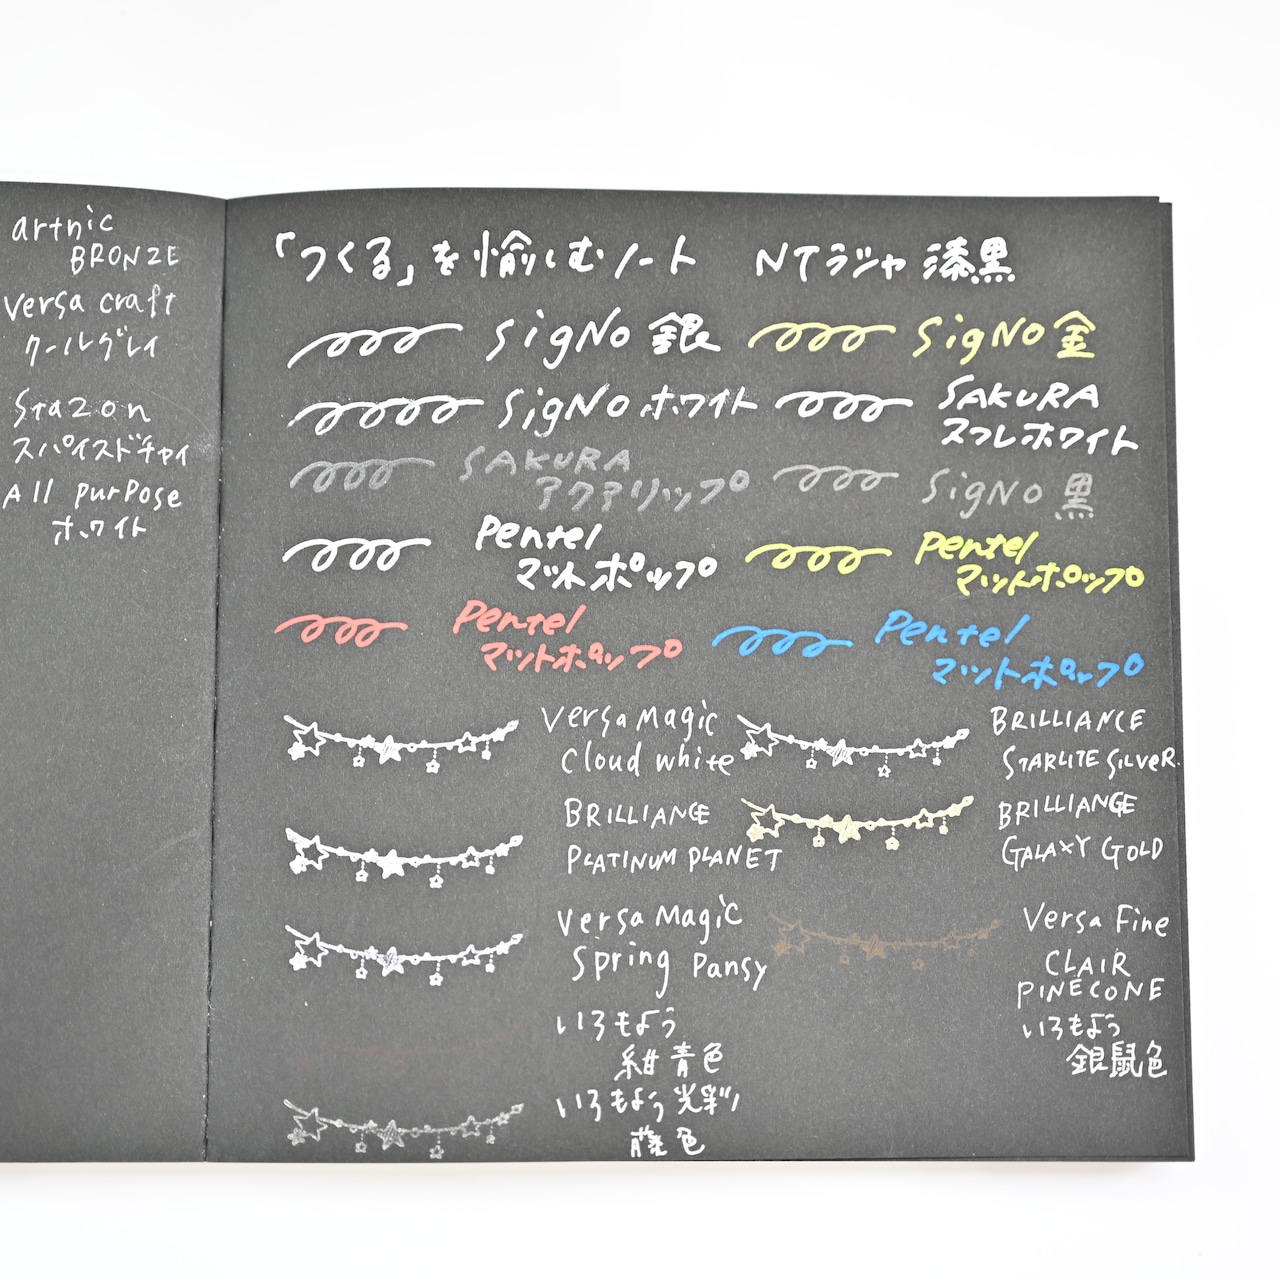 artnic
BRONZE
Versa craft
クールグレイ
Stazon
スパイスドチャイ
All purpose
ホワイト
「つくる」を愉しむノート NTラシャ 漆黒
SigNo 銀
SigNo 金
SigNo ホワイト
SAKURA
スフレホワイト
SAKURA
アクアリップ
SigNo 黒
Pentel
マットホップ
Pentel
マットホップ
Pentel
マットホップ
Pentel
マットホップ
Versa Magic
Cloud white
BRILLIANCE
STARLITE SILVER.
BRILLIANCE
PLATINUM PLANET
BRILLIANCE
GALAXY GOLD
Versa Magic
Spring Pansy
Versa Fine
CLAIR
PINECONE
いろもよう
紺青色
いろもよう
銀鼠色
いろもよう 光彩
藤色